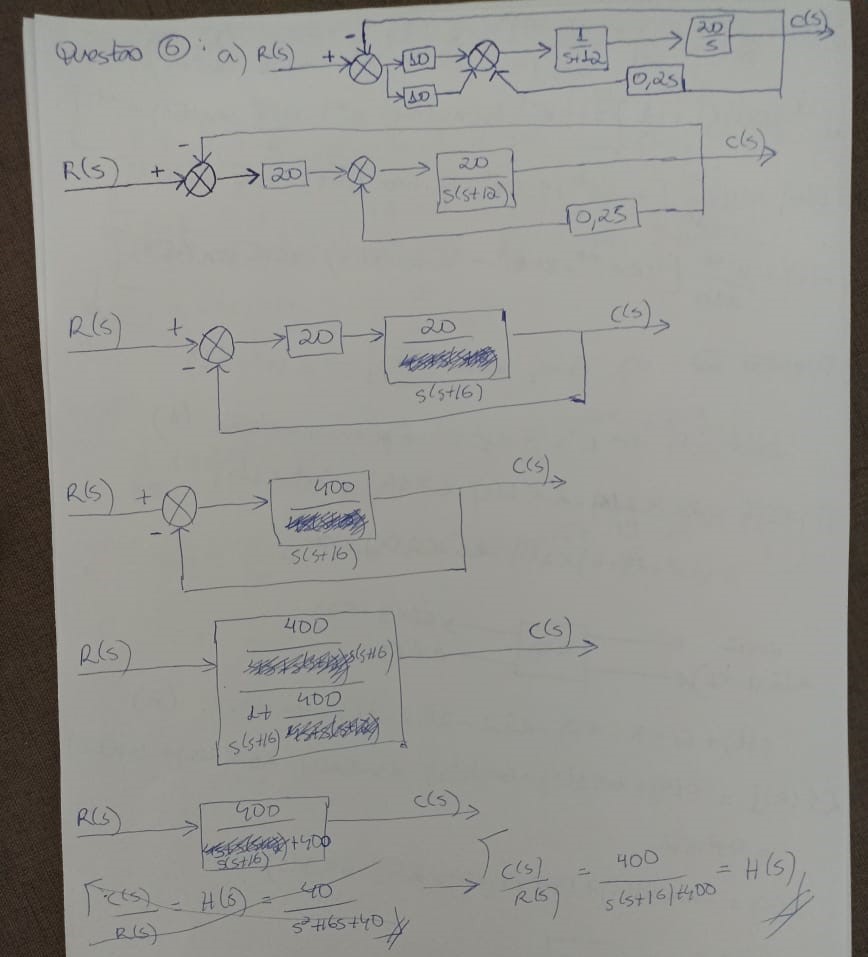 Questão 6: a) R(s) + - 10 10 1/(s+12) 20/s 0,25 C(s)
R(s) + - 20 20/(s(s+12)) 0,25 C(s)
R(s) + - 20 20/(s(s+16)) C(s)
R(s) + - 400/(s(s+16)) C(s)
R(s) 400/(s(s+16)) / (1+ 400/(s(s+16))) C(s)
R(s) 400/(s(s+16)+400) C(s)
C(s)/R(s) = H(s) = 40/(s²+16s+40)
C(s)/R(s) = 400/(s(s+16)+400) = H(s)